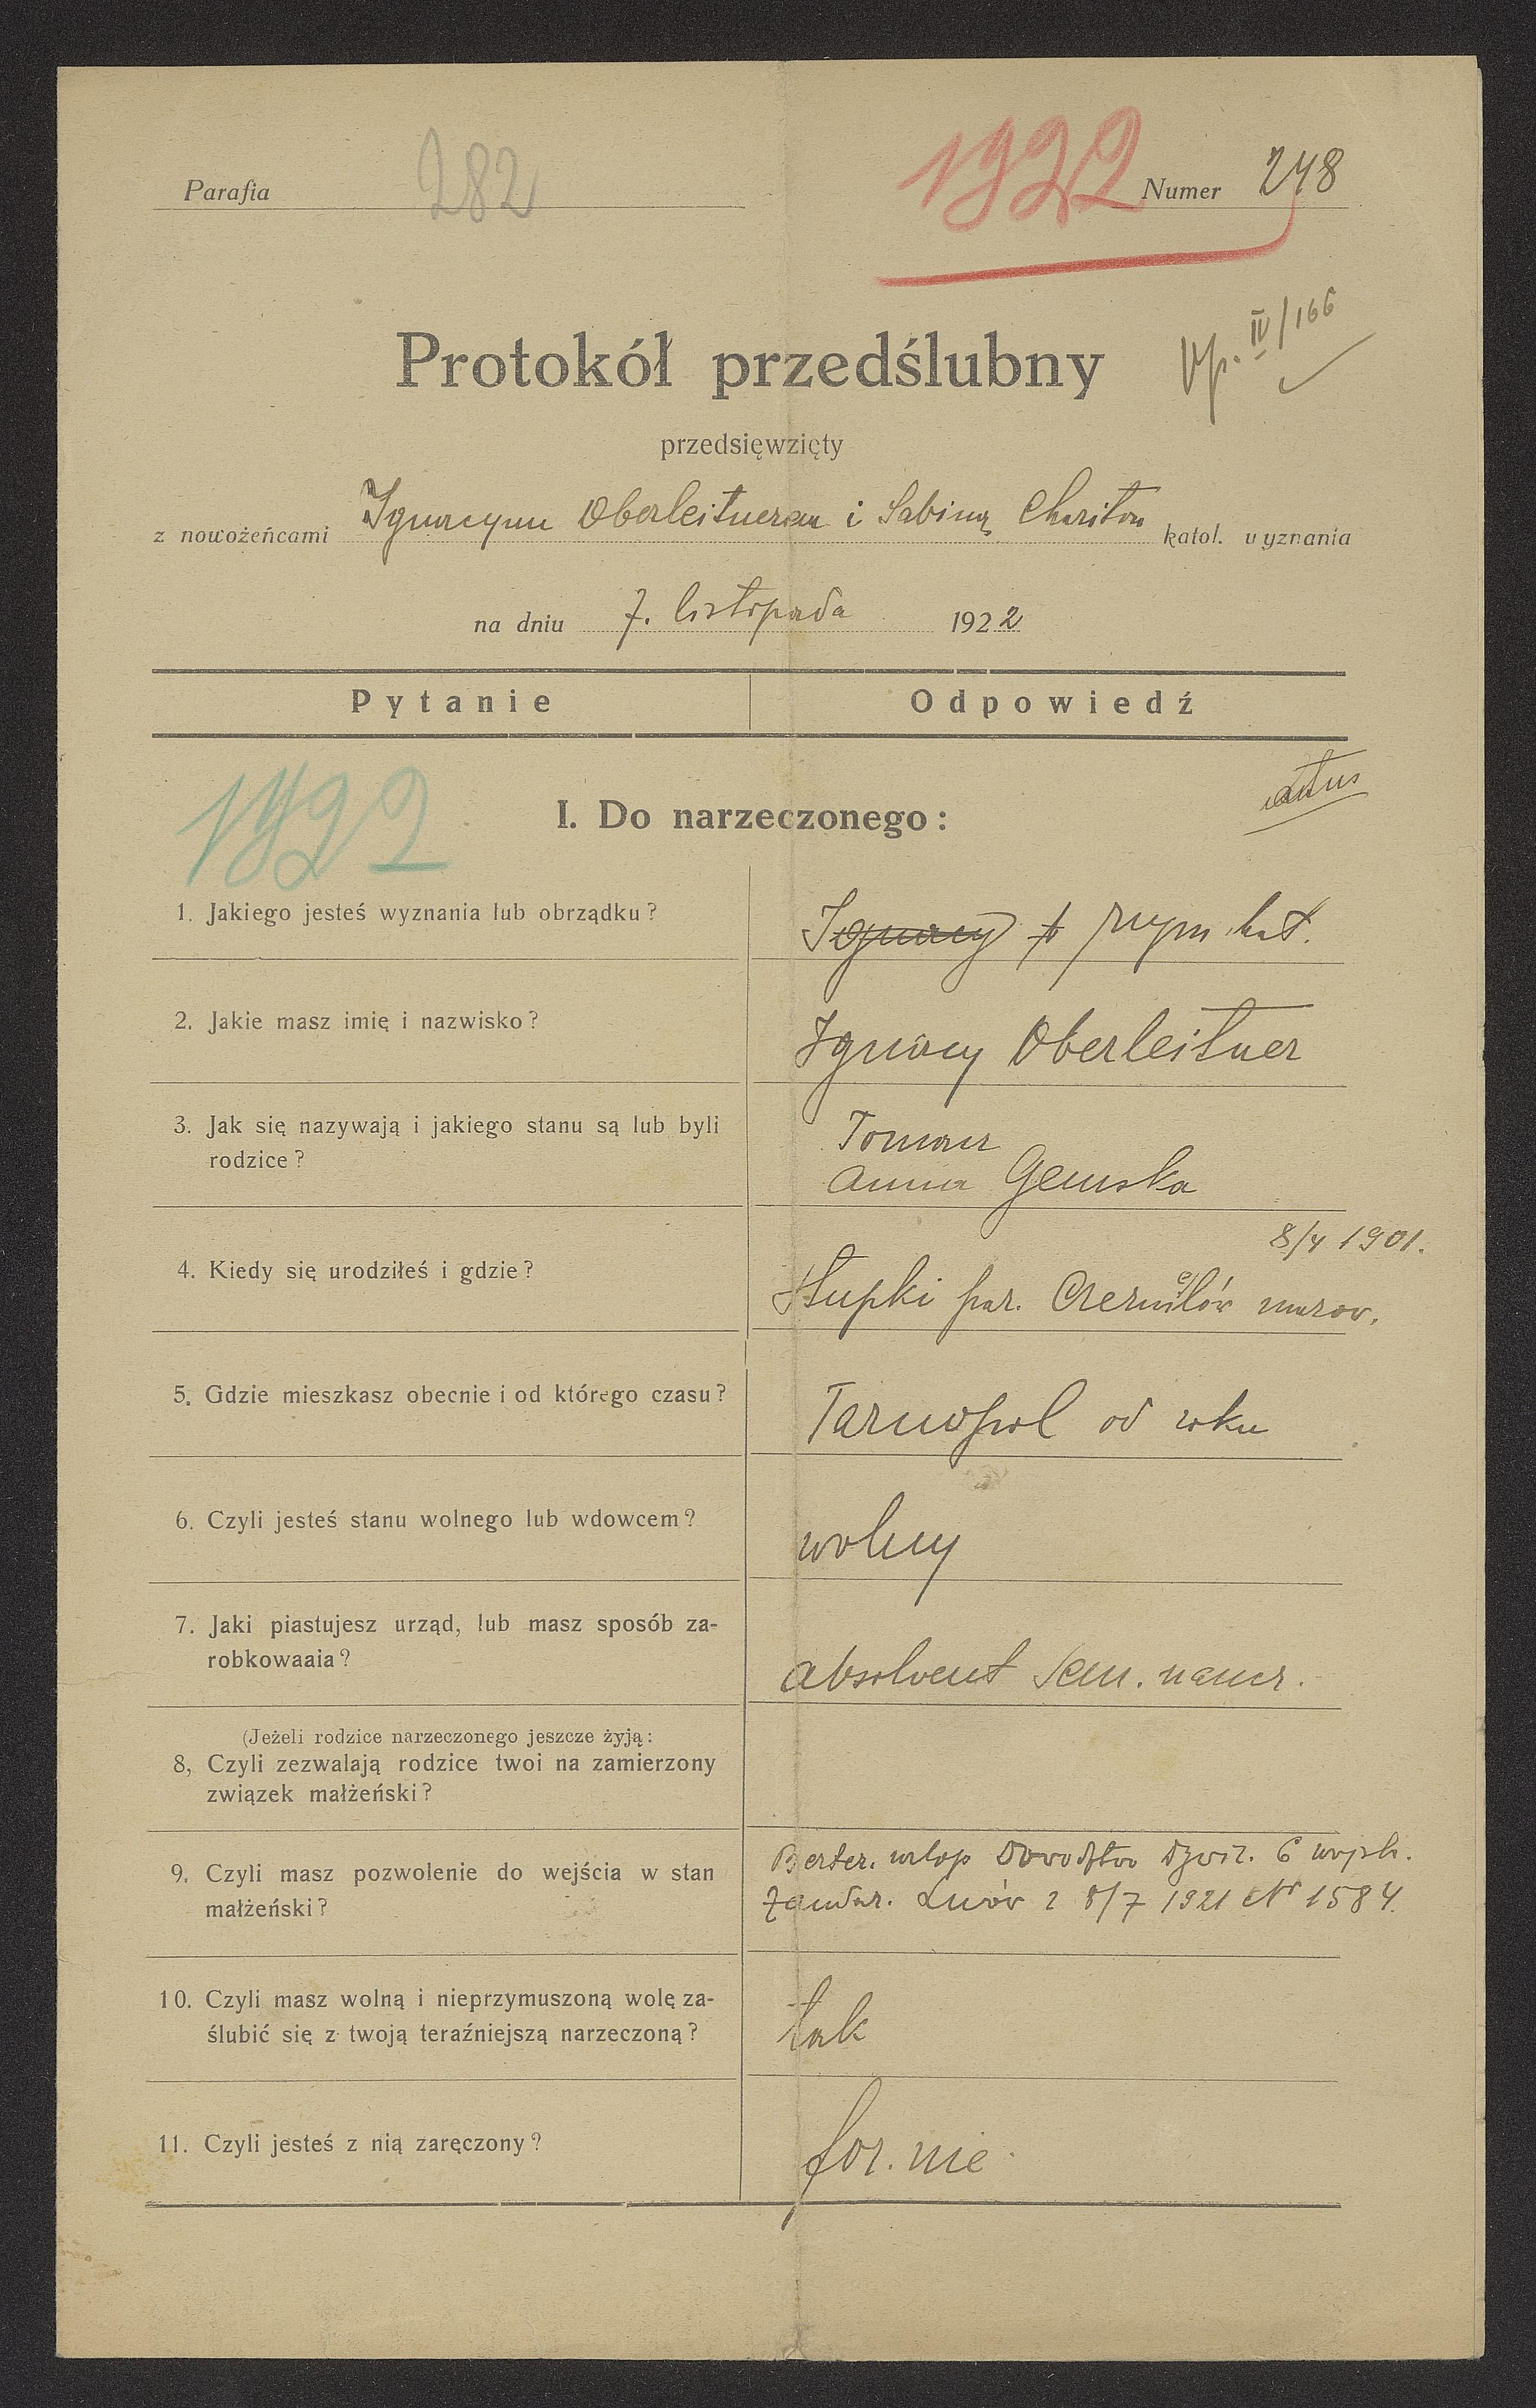 Parafia 282 1922 Numer 248
IV/166
Protokół przedślubny
przedsięwzięty
z nowożeńcami Ignacym Oberleitnerem i Sabiną Chariton katol. wyznania
na dniu 7. listopada 1922
Pytanie Odpowiedź
1922
I. Do narzeczonego:
1. Jakiego jesteś wyznania lub obrządku? Ignacy rzym. kat.
2. Jakie masz imię i nazwisko? Ignacy Oberleitner
3. Jak się nazywają i jakiego stanu są lub byli
rodzice?
Tomasz
Anna Gemska
8/4 1901.
4. Kiedy się urodziłeś i gdzie? Stupki par. Czernelów mazow.
5. Gdzie mieszkasz obecnie i od którego czasu? Tarnopol od roku
6. Czyli jesteś stanu wolnego lub wdowcem? wolny
7. Jaki piastujesz urząd, lub masz sposób za-
robkowaaia?
absolvent Sem. naucz.
(Jeżeli rodzice narzeczonego jeszcze żyją:
8, Czyli zezwalają rodzice twoi na zamierzony
związek małżeński?
9. Czyli masz pozwolenie do wejścia w stan
małżeński?
Bezter. urlop Dowodztwo Dywiz. 6 wojsk.
Żandar. Lwów z 8/7 1921 Nr 1584.
10. Czyli masz wolną i nieprzymuszoną wolę za-
ślubić się z twoją teraźniejszą narzeczoną?
tak
11. Czyli jesteś z nią zaręczony? for. nie